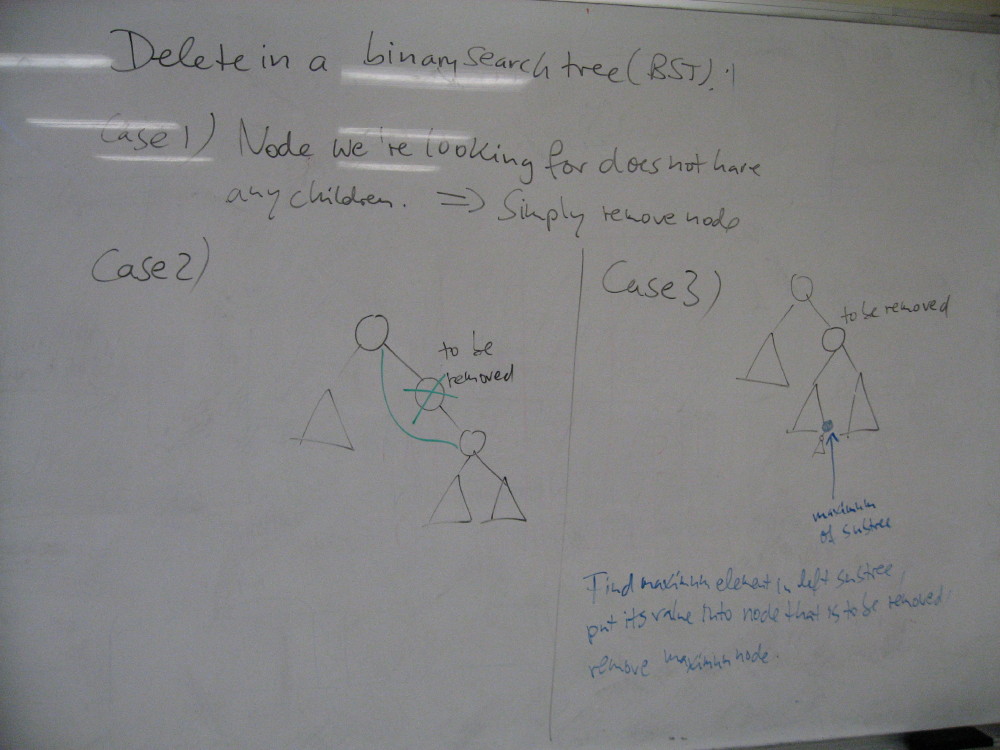 Delete in a binary search tree (BST).
Case 1) Node we're looking for does not have
any children. => Simply remove node
Case 2)
to be
removed
Case 3)
to be removed
maximum
of subtree
Find maximum element in left subtree,
put its value into node that is to be removed,
remove maximum node.